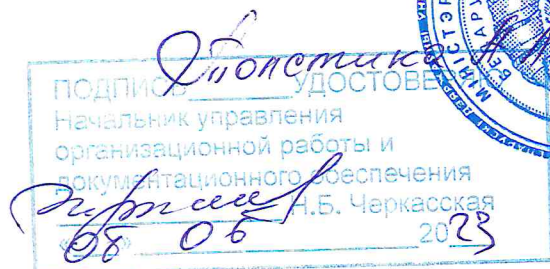 Толстика А.
ПОДПИСЬ УДОСТОВЕ
Начальник управления
организационной работы и
документационного обеспечения
Н.Б. Черкасская
«06» 06 2023
МІНІСТЭР
БЕЛАРУ